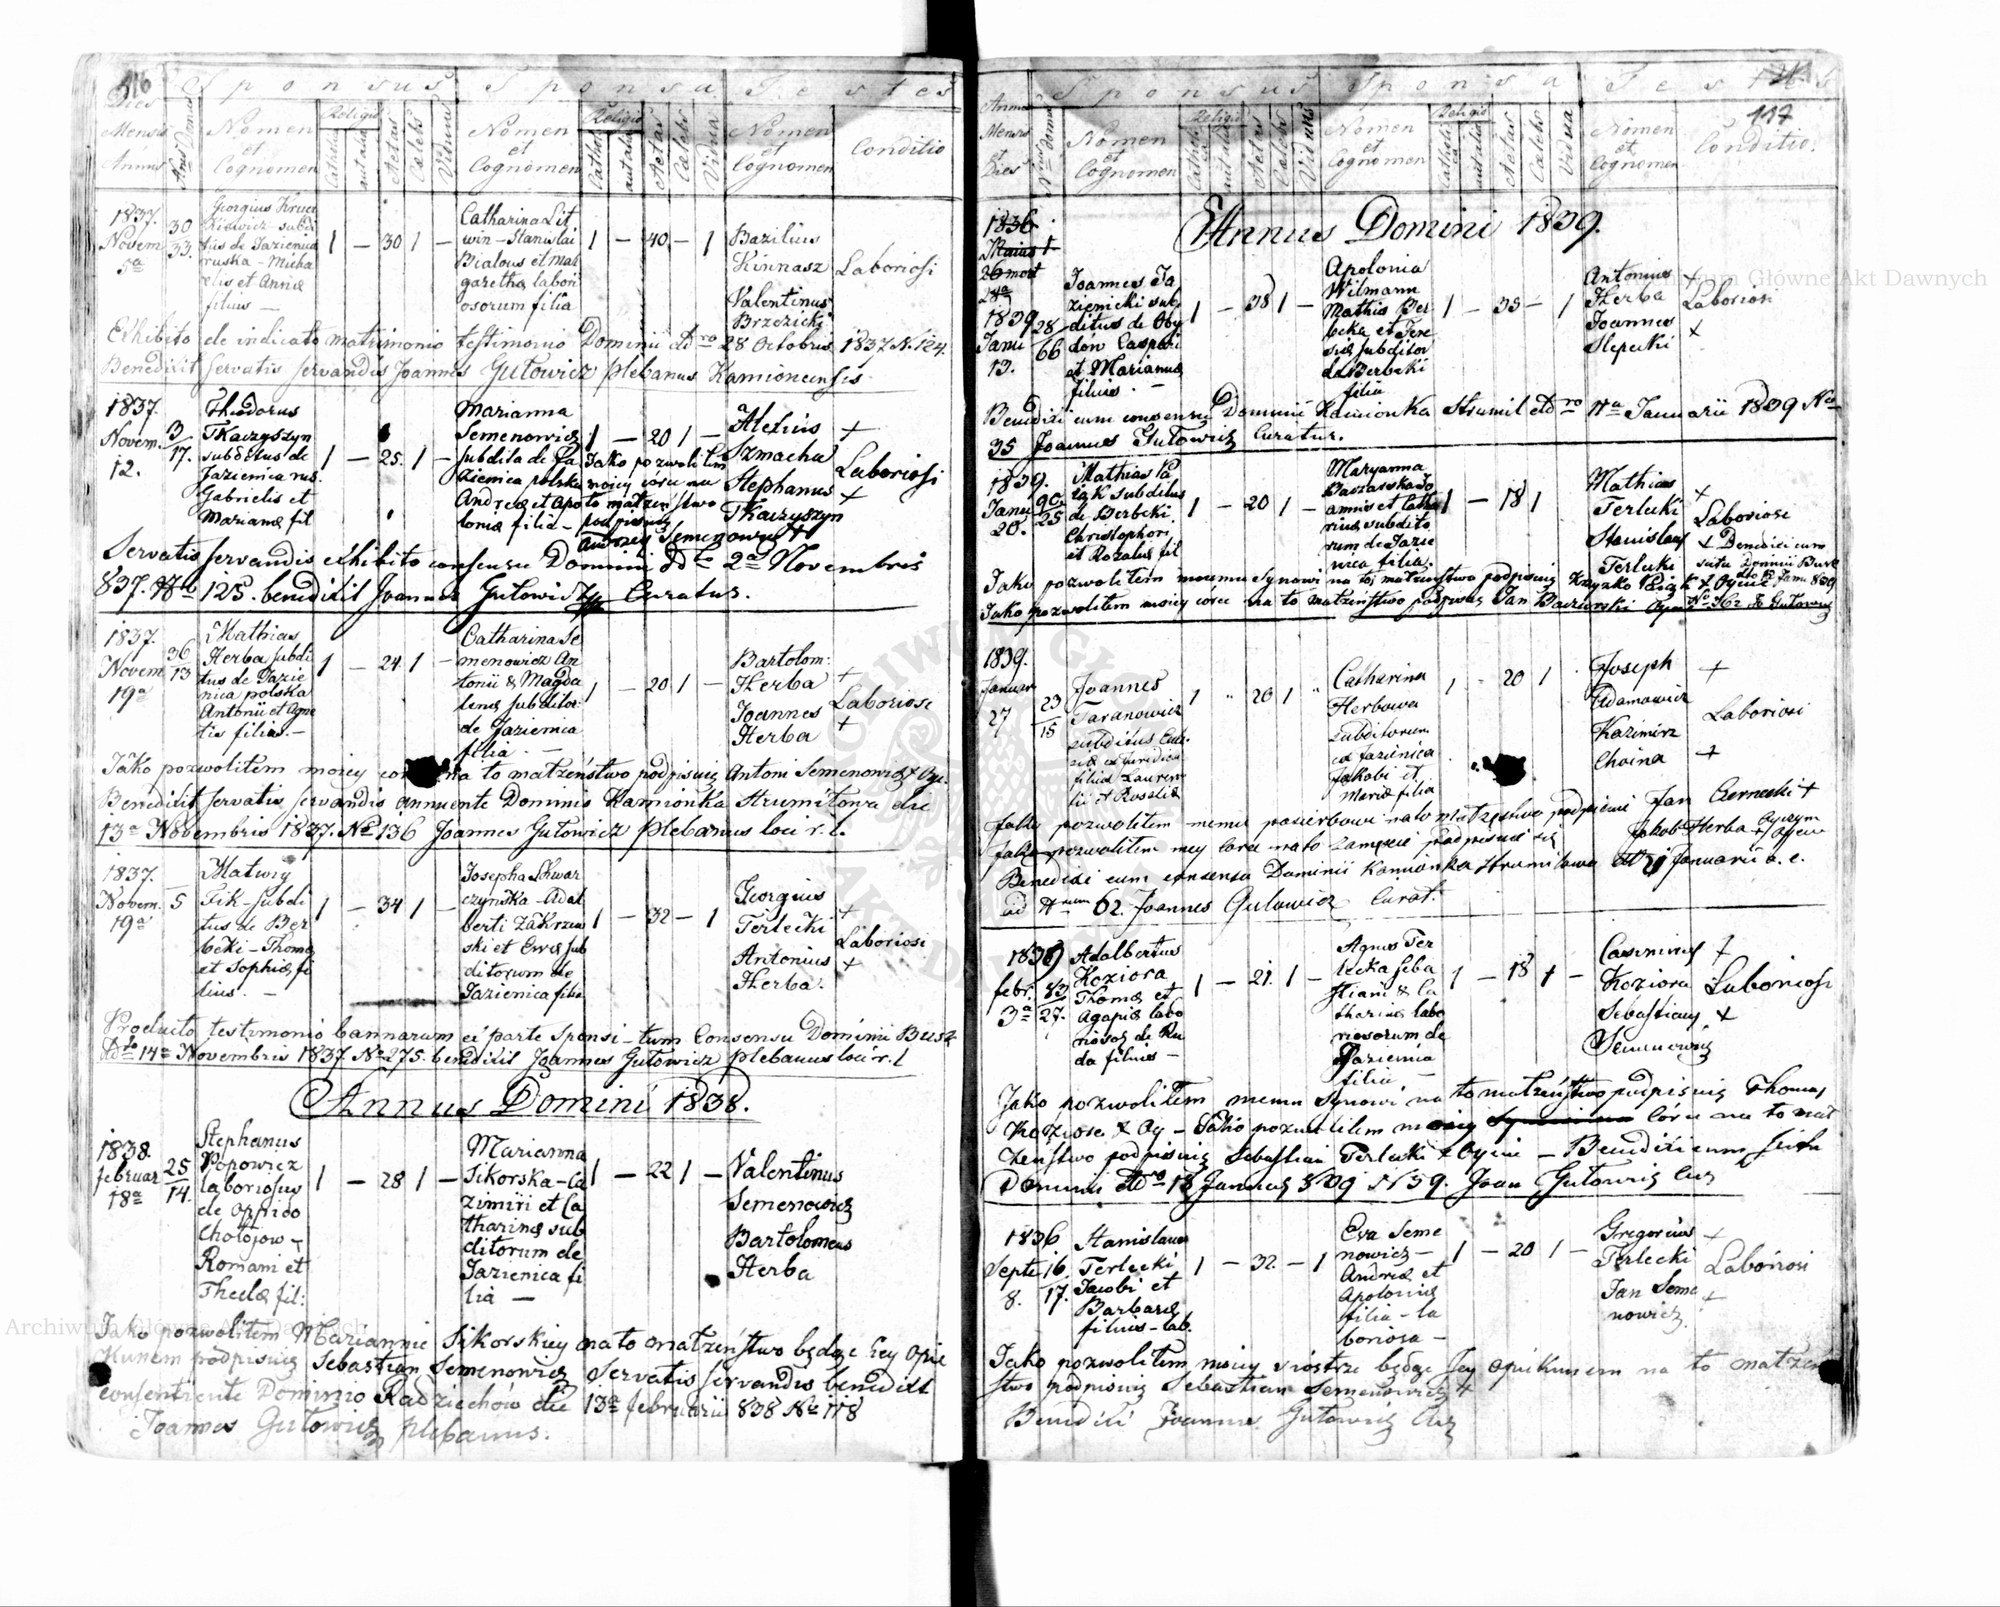 416
Sponsus Sponsa Testes
Dies Mensis Annus
Nrus Domus
Nomen et Cognomen
Religio
Catholica
aut alia
Aetas
Caelebs
Viduus
Nomen et Cognomen
Religio
Catholica
aut alia
Aetas
Caelebs
Vidua
Nomen et Cognomen
Conditio
1837. Novem 5a
30 33.
Georgius
subdi
tus de Jazienica
ruska - Micha
elis et Annæ
filius —
1 — 30 1 —
Catharina Lit
win - Stanislai
Bialous et Mar
garethæ labori
osorum filia
1 — 40 — 1
Bazilius
Kinnasz
Valentinus
Brzezicki
Laboriosi
Exhibito de indicato matrimonio testimonio Dominii ddro 28 Octobris 1837 N. 124.
Benedixit servatis servandis Joannes Gutowicz plebanus Kamioncensis
1837. Novem. 12.
3 17.
Theodorus
Tkaczyszyn
subditus de
Jazienica rus.
Gabrielis et
Mariannæ fil
1 — 25. 1 —
Marianna
Semenowicz
subdita de Ja
zienica polska
Andreæ et Apo
loniæ filia —
1 — 20 1 —
Jako pozwolilem
moiey córce na
to małzeństwo
podpisuię
Andrzey Semenowicz +
Alexius +
Szmacha
Stephanus +
Tkaczyszyn
Laboriosi
Servatis servandis exhibito consensu Dominii ddto 2a Novembris
837. No 125. benedixit Joannes Gutowicz Curatus.
1837. Novem 19a
36 13
Mathias
Herba subdi
tus de Jazie
nica polska
Antonii et Agne
tis filius. —
1 — 24 1 —
Catharina Se
menowicz An
tonii & Magda
lenæ subditor:
de Jazienica
filia. —
1 — 20 1 —
Bartolom: +
Herba
Joannes +
Herba
Laboriosi
Jako pozwolilem moiey na to małzeństwo podpisuię Antoni Semenowicz + Oyc.
Benedixit servatis servandis annuente Dominio Kamionka Strumiłowa die
13a Novembris 1837. No 136 Joannes Gutowicz plebanus loci r. l.
1837. Novem. 19a
5
Matwiy
Fik - subdi
tus de Ber
beki - Thomæ
et Sophiæ fi
lius. —
1 — 34 1 —
Josepha Schwar
czyńska - Adal
berti Zakrzew
ski et Evæ sub
ditorum de
Jazienica filia
1 — 32 — 1
Georgius +
Terlecki
Antonius +
Herba.
Laboriosi
Producto testimonio bannarum ex parte sponsi - tum Consensu Dominii Busk
ddto 14a Novembris 1837. No 275. benedixit Joannes Gutowicz plebanus loci r. l
Annus Domini 1838.
1838. februar 18a
25 14.
Stephanus
Popowicz
laboriosus
de oppido
Chołojow —
Romani et
Theclæ fil:
1 — 28 1 —
Marianna
Sikorska - Ca
zimiri et Ca
tharinæ sub
ditorum de
Jazienica fi
lia —
1 — 22 1 —
Valentinus
Semenowicz
Bartolomeus
Herba
Jako pozwolilem Mariannie Sikorskiey na to małzeństwo będąc Jey Opie
kunem podpisuię Sebastian Semenowicz Servatis servandis benedixit
consentiente Dominio Radziechów die 13a februarii 838 No 118
Joannes Gutowicz plebanus.
117
Sponsus Sponsa Testes
Annus Mensis et Dies
Nrus Domus
Nomen et Cognomen
Religio
Catholica
aut alia
Aetas
Caelebs
Viduus
Nomen et Cognomen
Religio
Catholica
aut alia
Aetas
Caelebs
Vidua
Nomen et Cognomen
Conditio.
Annus Domini 1839.
1836
1839 Janu 13.
28 66
Joannes Ja
ziemicki sub
ditus de Oby
don Caspari
et Mariannæ
filius. —
1 — 38 1 —
Apolonia
Witmann
Mathis Ber
beka et There
siæ subditor
de Berbeki
filia
1 — 35 — 1
Antonius +
Herba
Joannes +
Slepecki
Laboriosi
Benedixi cum consensu Dominii Kamionka Strumil ddro 11a Januarii 1839 No
35 Joannes Gutowicz Curatus.
1839. Janu 20.
90. 25
Mathias
subditus
de Berbeki.
Christophori
et Rozaliæ fil
1 — 20 1 —
Maryanna
Baczarska Jo
annis et Catha
rinæ subdito
rum de Jazie
nica filia.
1 — 18 1
Mathias +
Terlecki
Stanislaus +
Terlecki
Laboriosi
Benedixi cum
Jako pozwolilem moiemu Synowi na to małzeństwo podpisuię
Jako pozwolilem moiey córce na to małzeństwo podpisuię Jan Baczarski
1839. Januar 27
23 15
Joannes
Taranowicz
subditus
filius Lauren
tii et Rosaliæ
1 " 26 1 "
Catharina
Herbowa
subditorum
ex Jazienica
Jakobi et
Mariæ filia
1 - 20 1
Joseph +
Adamowicz
Kazimirz
Choina +
Laboriosi
Jako pozwolilem memu pasierbowi na to małzęstwo podpisuie Jan +
Jako pozwolilem mey corce na to zamęscie podpisuie się Jakob Herba +
Benedixi cum consensu Dominii Kamionka Strumilowa Januarii a. c.
ad Nrum 62. Joannes Gutowicz Curat.
1839 febr. 3a
83 27.
Adalbertus
Koziora
Thomæ et
Agapiæ labo
riosor de Ru
da filius —
1 — 21. 1 —
Agnes Ter
lecka Seba
stiani & Ca
tharinæ labo
riosorum de
Jazienia
filia. —
1 — 18 1 —
Casimirus +
Koziora
Sebastian +
Semenowicz
Laboriosi
Jako pozwolilem memu Synowi na to małzeństwo podpisuię Thomas
Koziora + Oy - Jako pozwolilem moiey córce na to mał
zeństwo podpisuię Sebastian Terlecki + Oyciec — Benedixi cum
Dominii ddro 18 Januarij 839 N 39. Joan Gutowicz Cur
1836 Septe 8.
16 17.
Stanislaus
Terlecki
Jacobi et
Barbaræ
filius - lab.
1 — 32. — 1
Eva Seme
nowicz —
Andreæ et
Apoloniæ
filia - la
boriosa —
1 — 20 1 —
Gregorius +
Terlecki
Jan Seme +
nowicz.
Laboriosi
Jako pozwolilem moiey siostrze będąc Jey Opikunem na to małzeń
stwo podpisuię Sebastian Semenowicz +
Benedixi Joannes Gutowicz Cur
Archiwum Główne Akt Dawnych
Archiwum Główne Akt Dawnych
ARCHIWUM GŁÓWNE AKT DAWNYCH